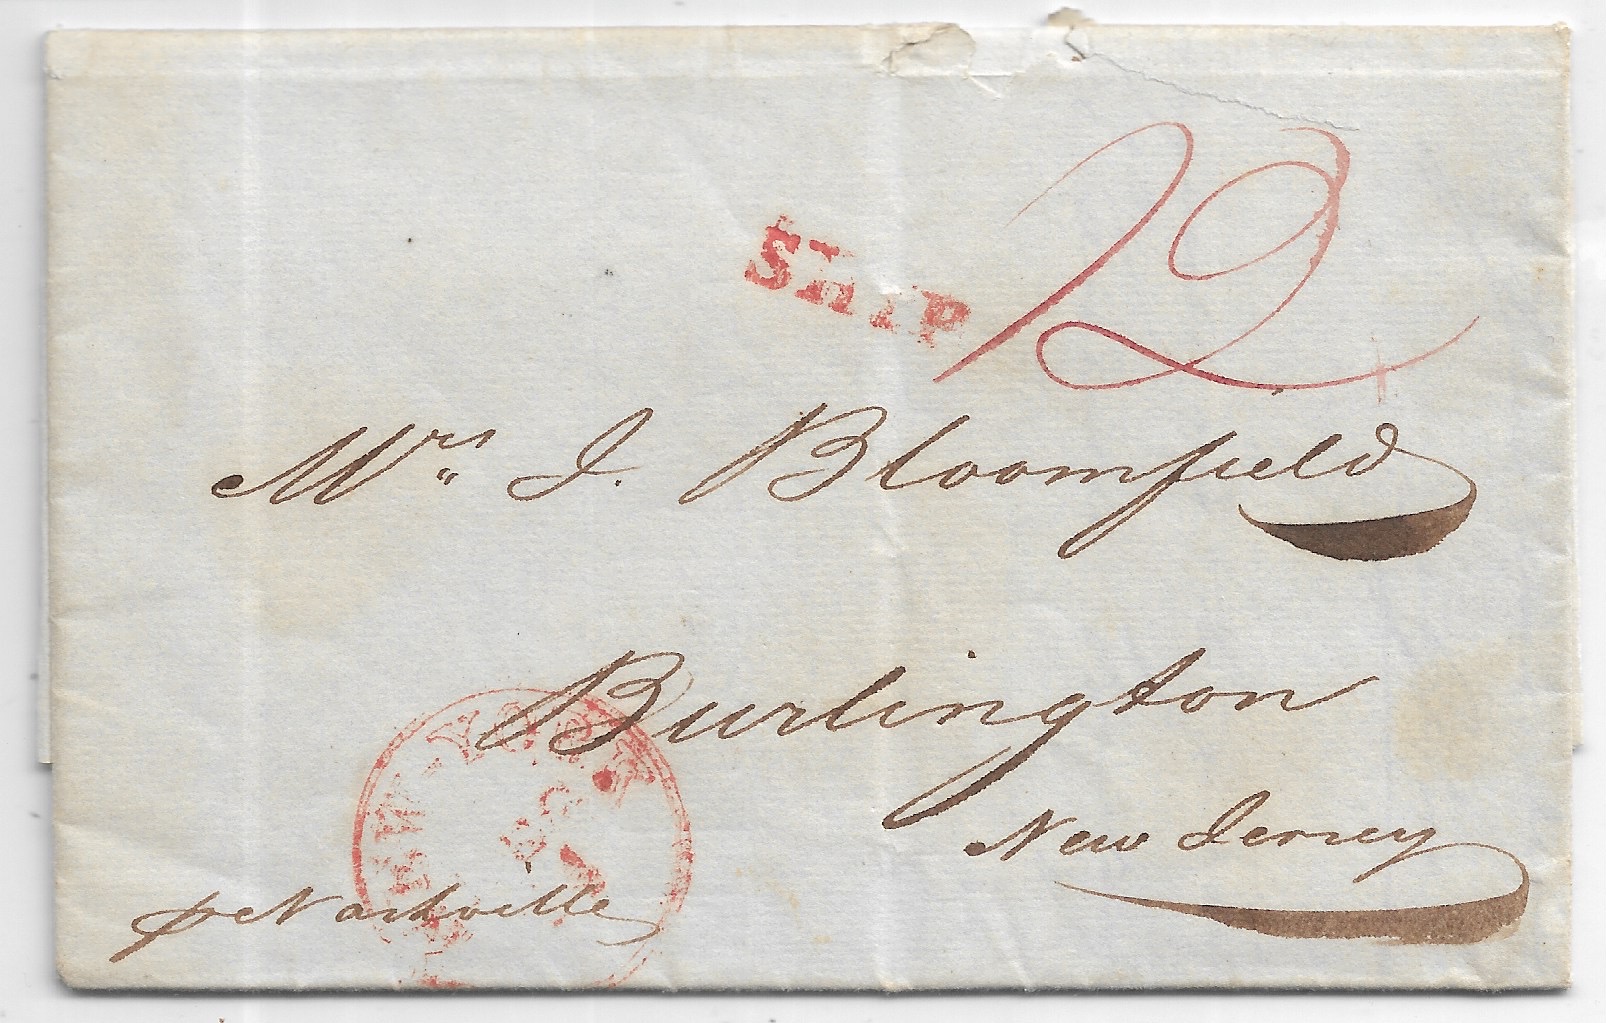 SHIP
12
Mrs. J. Bloomfield
Burlington
New Jersey
NEW-YORK
p Nashville